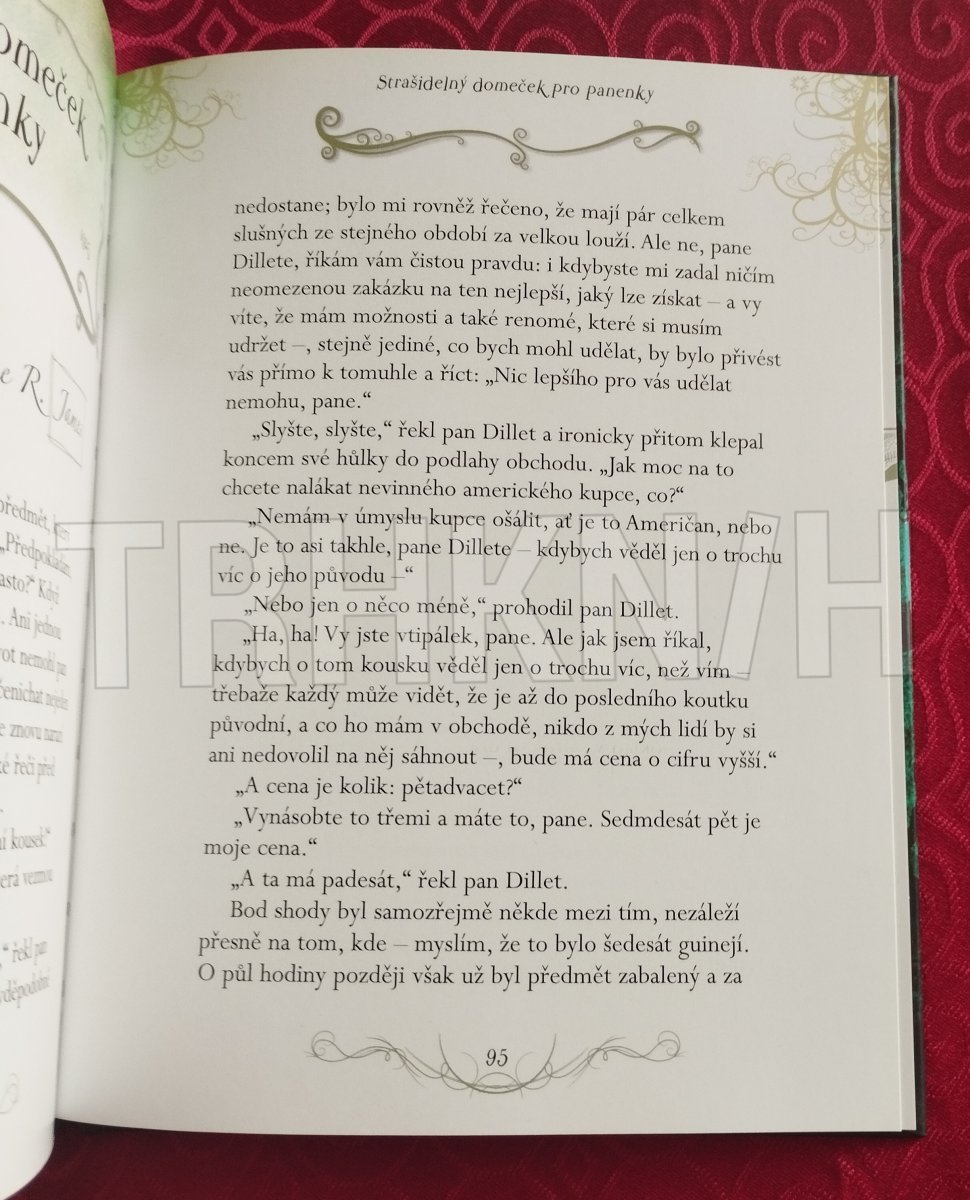 omeček
nky
e R. James
předmět, který
„Předpokládám
asto?“ Když
. Ani jednou
vot nemohl pan
čenichat nejeden
e znovu
ké řeči před
ní kousek“
erá vezmou
,“ řekl pan
vděpodobně
Strašidelný domeček pro panenky
nedostane; bylo mi rovněž řečeno, že mají pár celkem
slušných ze stejného období za velkou louží. Ale ne, pane
Dillete, říkám vám čistou pravdu: i kdybyste mi zadal ničím
neomezenou zakázku na ten nejlepší, jaký lze získat – a vy
víte, že mám možnosti a také renomé, které si musím
udržet –, stejně jediné, co bych mohl udělat, by bylo přivést
vás přímo k tomuhle a říct: „Nic lepšího pro vás udělat
nemohu, pane.“
„Slyšte, slyšte,“ řekl pan Dillet a ironicky přitom klepal
koncem své hůlky do podlahy obchodu. „Jak moc na to
chcete nalákat nevinného amerického kupce, co?“
„Nemám v úmyslu kupce ošálit, ať je to Američan, nebo
ne. Je to asi takhle, pane Dillete – kdybych věděl jen o trochu
víc o jeho původu –“
„Nebo jen o něco méně,“ prohodil pan Dillet.
„Ha, ha! Vy jste vtipálek, pane. Ale jak jsem říkal,
kdybych o tom kousku věděl jen o trochu víc, než vím –
třebaže každý může vidět, že je až do posledního koutku
původní, a co ho mám v obchodě, nikdo z mých lidí by si
ani nedovolil na něj sáhnout –, bude má cena o cifru vyšší.“
„A cena je kolik: pětadvacet?“
„Vynásobte to třemi a máte to, pane. Sedmdesát pět je
moje cena.“
„A ta má padesát,“ řekl pan Dillet.
Bod shody byl samozřejmě někde mezi tím, nezáleží
přesně na tom, kde – myslím, že to bylo šedesát guinejí.
O půl hodiny později však už byl předmět zabalený a za
95
TRHKNIH